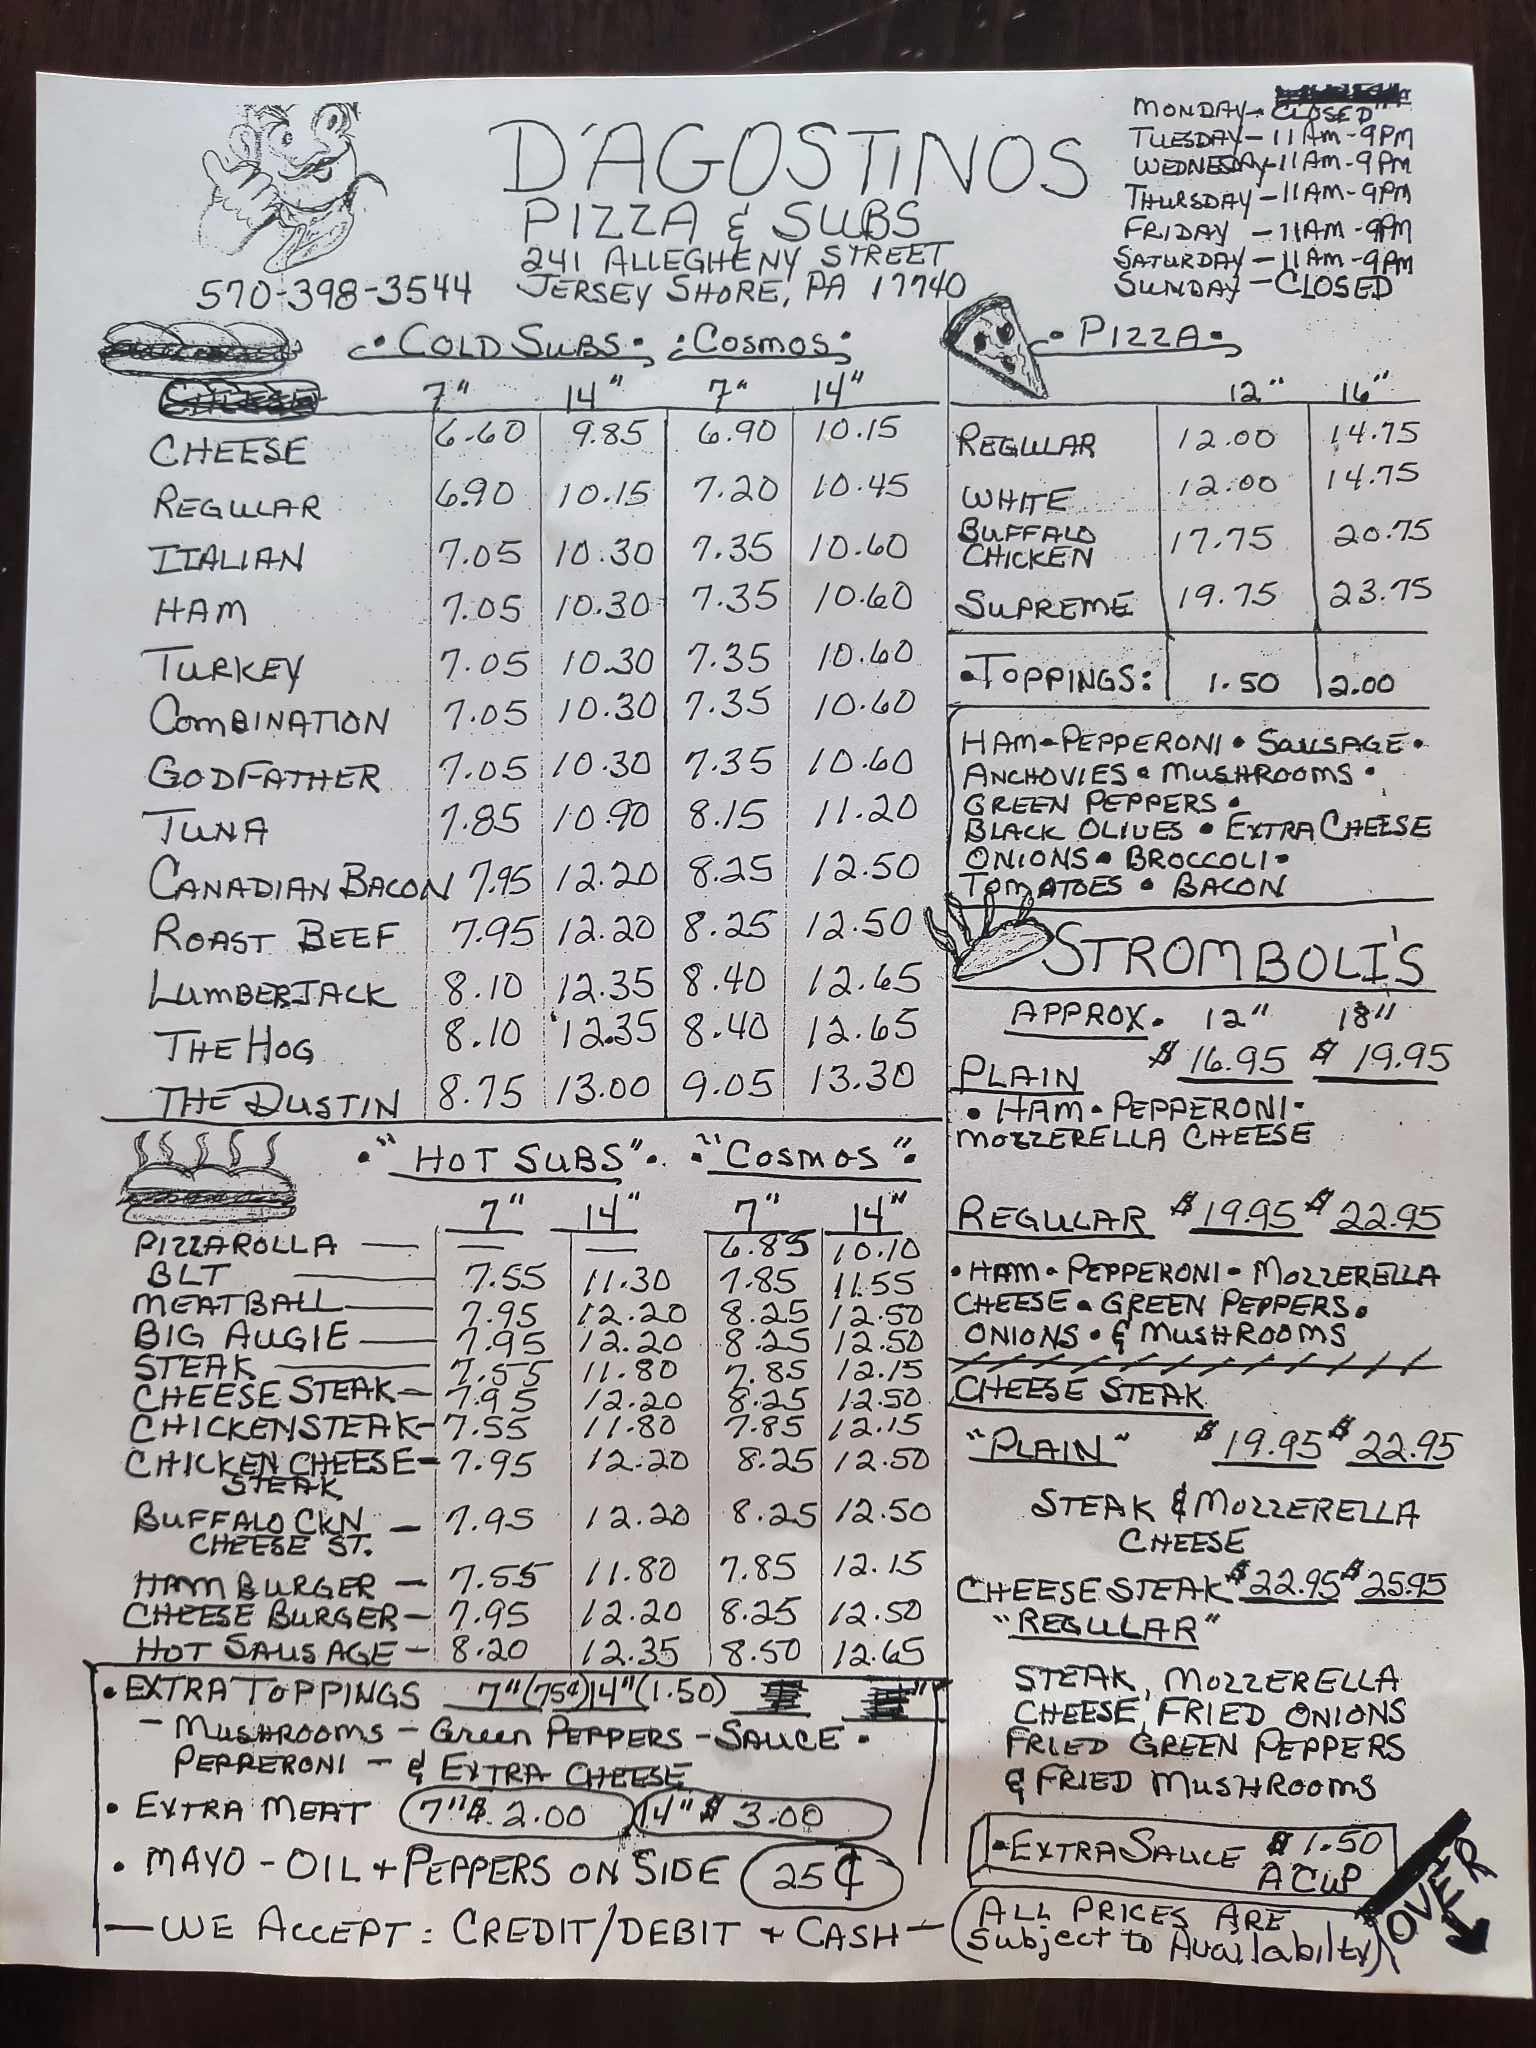 D'AGOSTINOS
PIZZA & SUBS
241 ALLEGHENY STREET
570-398-3544 JERSEY SHORE, PA 17740
MONDAY - CLOSED
TUESDAY - 11AM - 9PM
WEDNESDAY - 11AM - 9PM
THURSDAY - 11AM - 9PM
FRIDAY - 11AM - 9PM
SATURDAY - 11AM - 9PM
SUNDAY - CLOSED
• COLD SUBS • : COSMOS •
7" 14" 7" 14"
CHEESE 6.60 9.85 6.90 10.15
REGULAR 6.90 10.15 7.20 10.45
ITALIAN 7.05 10.30 7.35 10.60
HAM 7.05 10.30 7.35 10.60
TURKEY 7.05 10.30 7.35 10.60
COMBINATION 7.05 10.30 7.35 10.60
GODFATHER 7.05 10.30 7.35 10.60
TUNA 7.85 10.90 8.15 11.20
CANADIAN BACON 7.95 12.20 8.25 12.50
ROAST BEEF 7.95 12.20 8.25 12.50
LUMBERJACK 8.10 12.35 8.40 12.65
THE HOG 8.10 12.35 8.40 12.65
THE DUSTIN 8.75 13.00 9.05 13.30
• "HOT SUBS" • • "COSMOS" •
7" 14" 7" 14"
PIZZAROLLA — — — 6.85 10.10
BLT — 7.55 11.30 7.85 11.55
MEATBALL — 7.95 12.20 8.25 12.50
BIG AUGIE — 7.95 12.20 8.25 12.50
STEAK — 7.55 11.80 7.85 12.15
CHEESE STEAK — 7.95 12.20 8.25 12.50
CHICKEN STEAK — 7.55 11.80 7.85 12.15
CHICKEN CHEESE — 7.95 12.20 8.25 12.50
STEAK
BUFFALO CKN — 7.95 12.20 8.25 12.50
CHEESE ST.
HAMBURGER — 7.55 11.80 7.85 12.15
CHEESE BURGER — 7.95 12.20 8.25 12.50
HOT SAUSAGE — 8.20 12.35 8.50 12.65
• EXTRA TOPPINGS 7" (75¢) 14" (1.50)
- MUSHROOMS - GREEN PEPPERS - SAUCE •
PEPPERONI - & EXTRA CHEESE
• EXTRA MEAT 7" $ 2.00 14" $ 3.00
• MAYO - OIL + PEPPERS ON SIDE 25¢
— WE ACCEPT : CREDIT/DEBIT + CASH —
• PIZZA •
12" 16"
REGULAR 12.00 14.75
WHITE 12.00 14.75
BUFFALO
CHICKEN 17.75 20.75
SUPREME 19.75 23.75
• TOPPINGS: 1.50 2.00
HAM • PEPPERONI • SAUSAGE •
ANCHOVIES • MUSHROOMS •
GREEN PEPPERS •
BLACK OLIVES • EXTRA CHEESE
ONIONS • BROCCOLI •
TOMATOES • BACON
STROMBOLI'S
APPROX. 12" 18"
PLAIN $ 16.95 $ 19.95
• HAM • PEPPERONI •
MOZZERELLA CHEESE
REGULAR $ 19.95 $ 22.95
• HAM • PEPPERONI • MOZZERELLA
CHEESE • GREEN PEPPERS •
ONIONS • & MUSHROOMS
CHEESE STEAK
"PLAIN" $ 19.95 $ 22.95
STEAK & MOZZERELLA
CHEESE
CHEESE STEAK $ 22.95 $ 25.95
"REGULAR"
STEAK, MOZZERELLA
CHEESE, FRIED ONIONS
FRIED GREEN PEPPERS
& FRIED MUSHROOMS
• EXTRA SAUCE $ 1.50
A CUP
ALL PRICES ARE
Subject to Availabilty
OVER